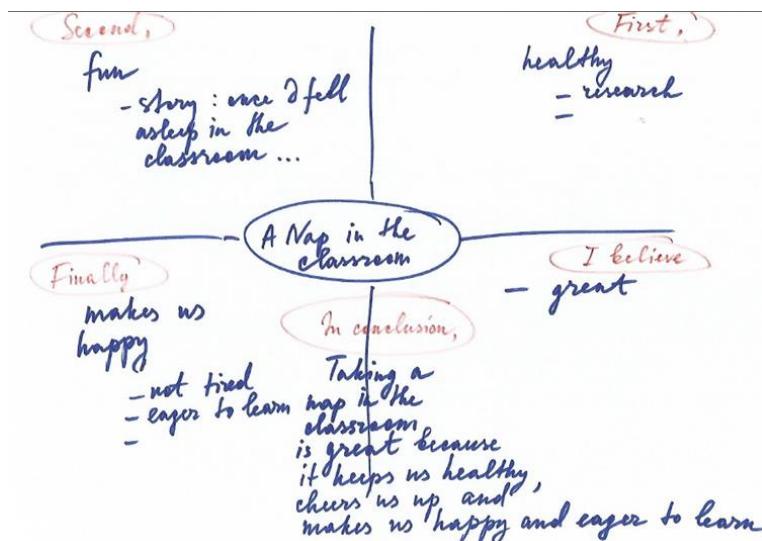 Second,
fun
- story : once I fell
asleep in the
classroom ...
First,
healthy
- research
-
A Nap in the
classroom
Finally
makes us
happy
- not tired
- eager to learn
-
I believe
- great
In conclusion,
Taking a
nap in the
classroom
is great because
it keeps us healthy,
cheers us up and
makes us happy and eager to learn